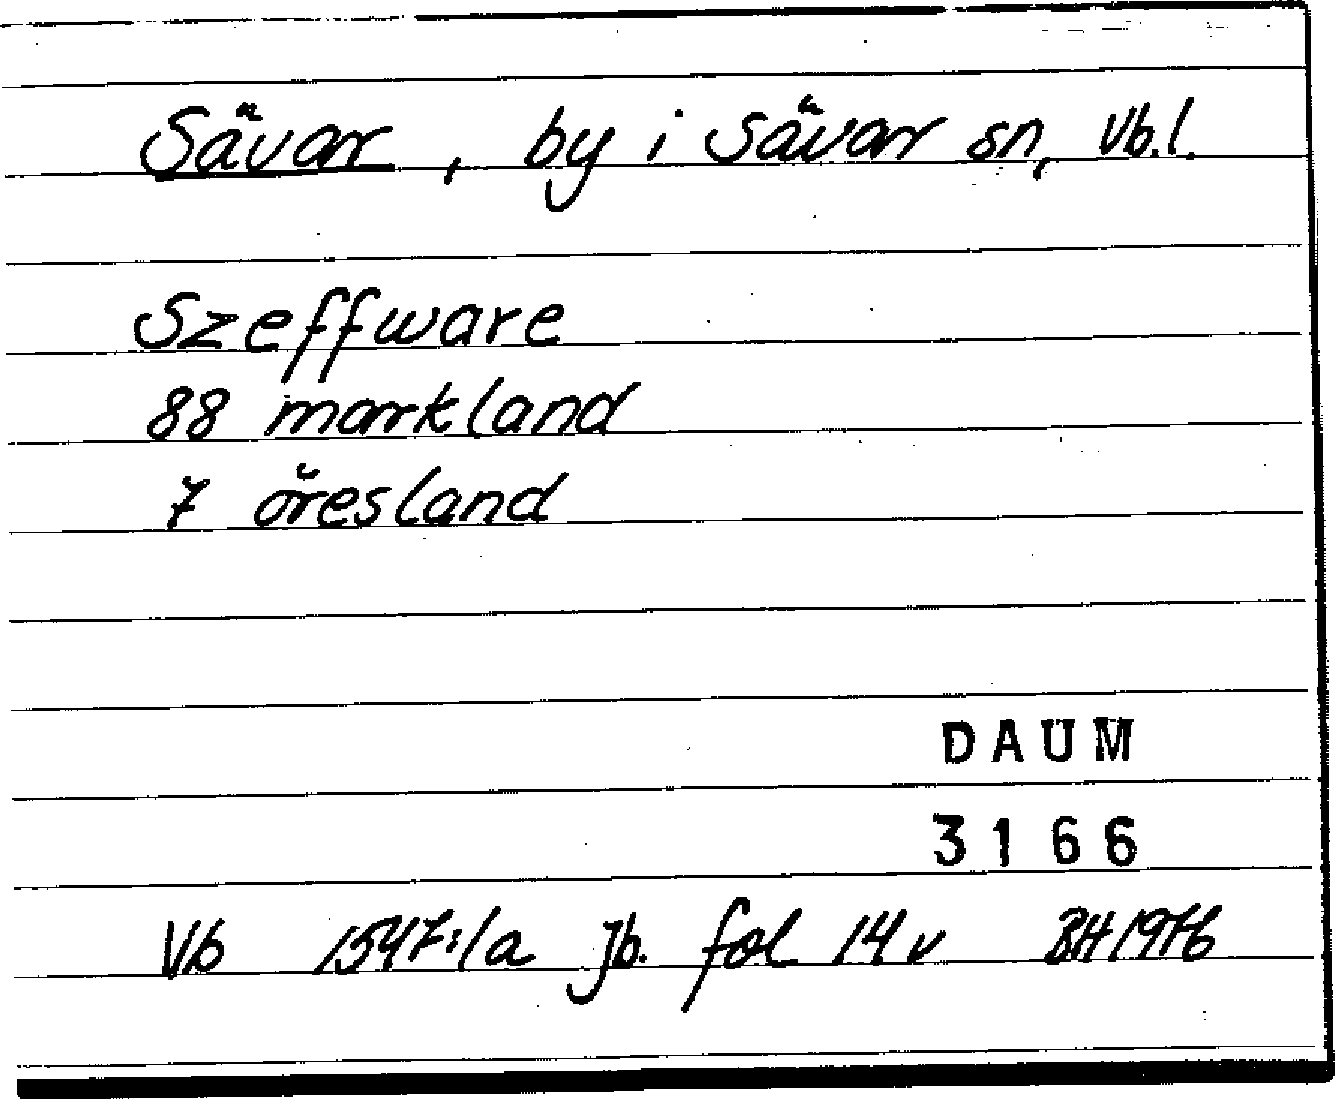 Sävar, by i Sävar sn, Vb.l.
Szeffware
88 markland
7 öresland
DAUM
3166
Vb 1547:1a jb. fol 14 v BH 1976